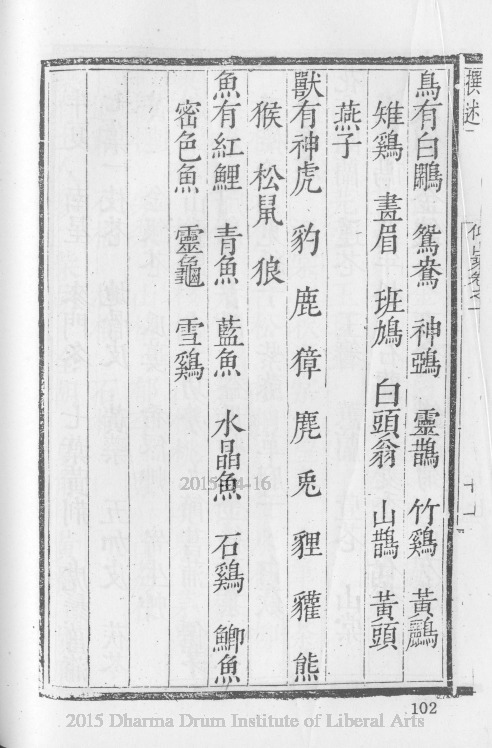 撰述
鳥有白鷴 鴛鴦 神鵶 靈鵲 竹鷄 黃鸝
雉鷄 畫眉 班鳩 白頭翁 山鵲 黃頭
燕子
獸有神虎 豹 鹿 獐 麂 兎 貍 獾 熊
猴 松鼠 狼
魚有紅鯉 青魚 藍魚 水晶魚 石鷄 鯽魚
密色魚 靈龜 雪鷄
102
2015-04-16
2015 Dharma Drum Institute of Liberal Arts